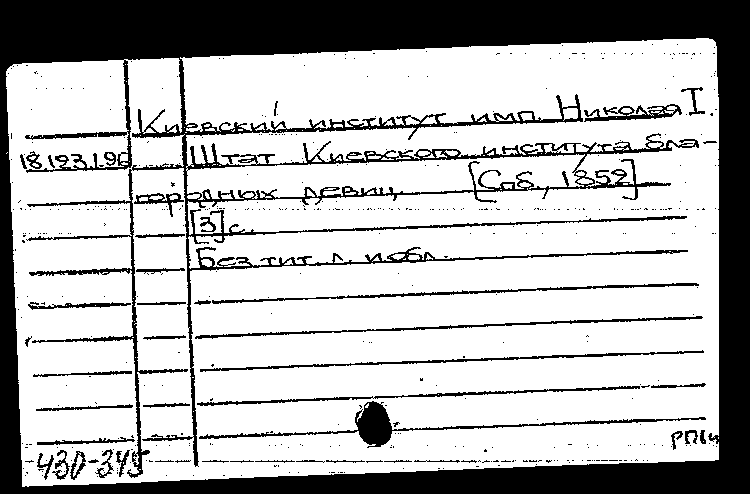 Киевский институт имп. Николая I.
18.123.1.96 Штат Киевского института бла-
городных девиц. [Спб., 1852]
[3] с.
Без тит. л. и обл.
430-345